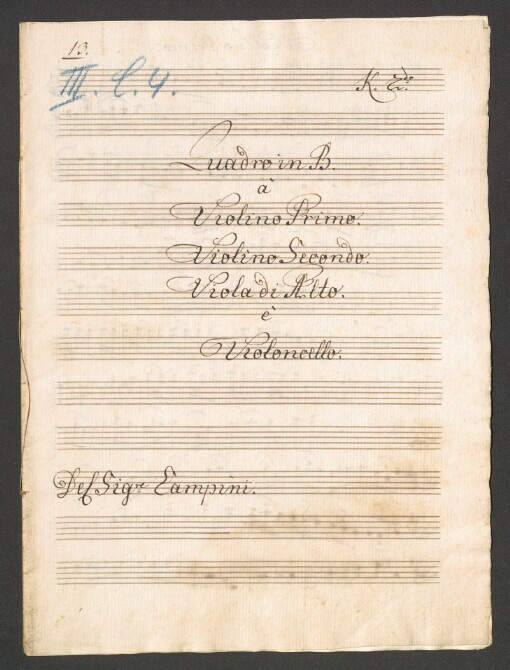 13.
III. C. 4.
Quadro in B.
à
Violino Primo.
Violino Secondo.
Viola di Alto.
è
Violoncello.
Del Sig.re